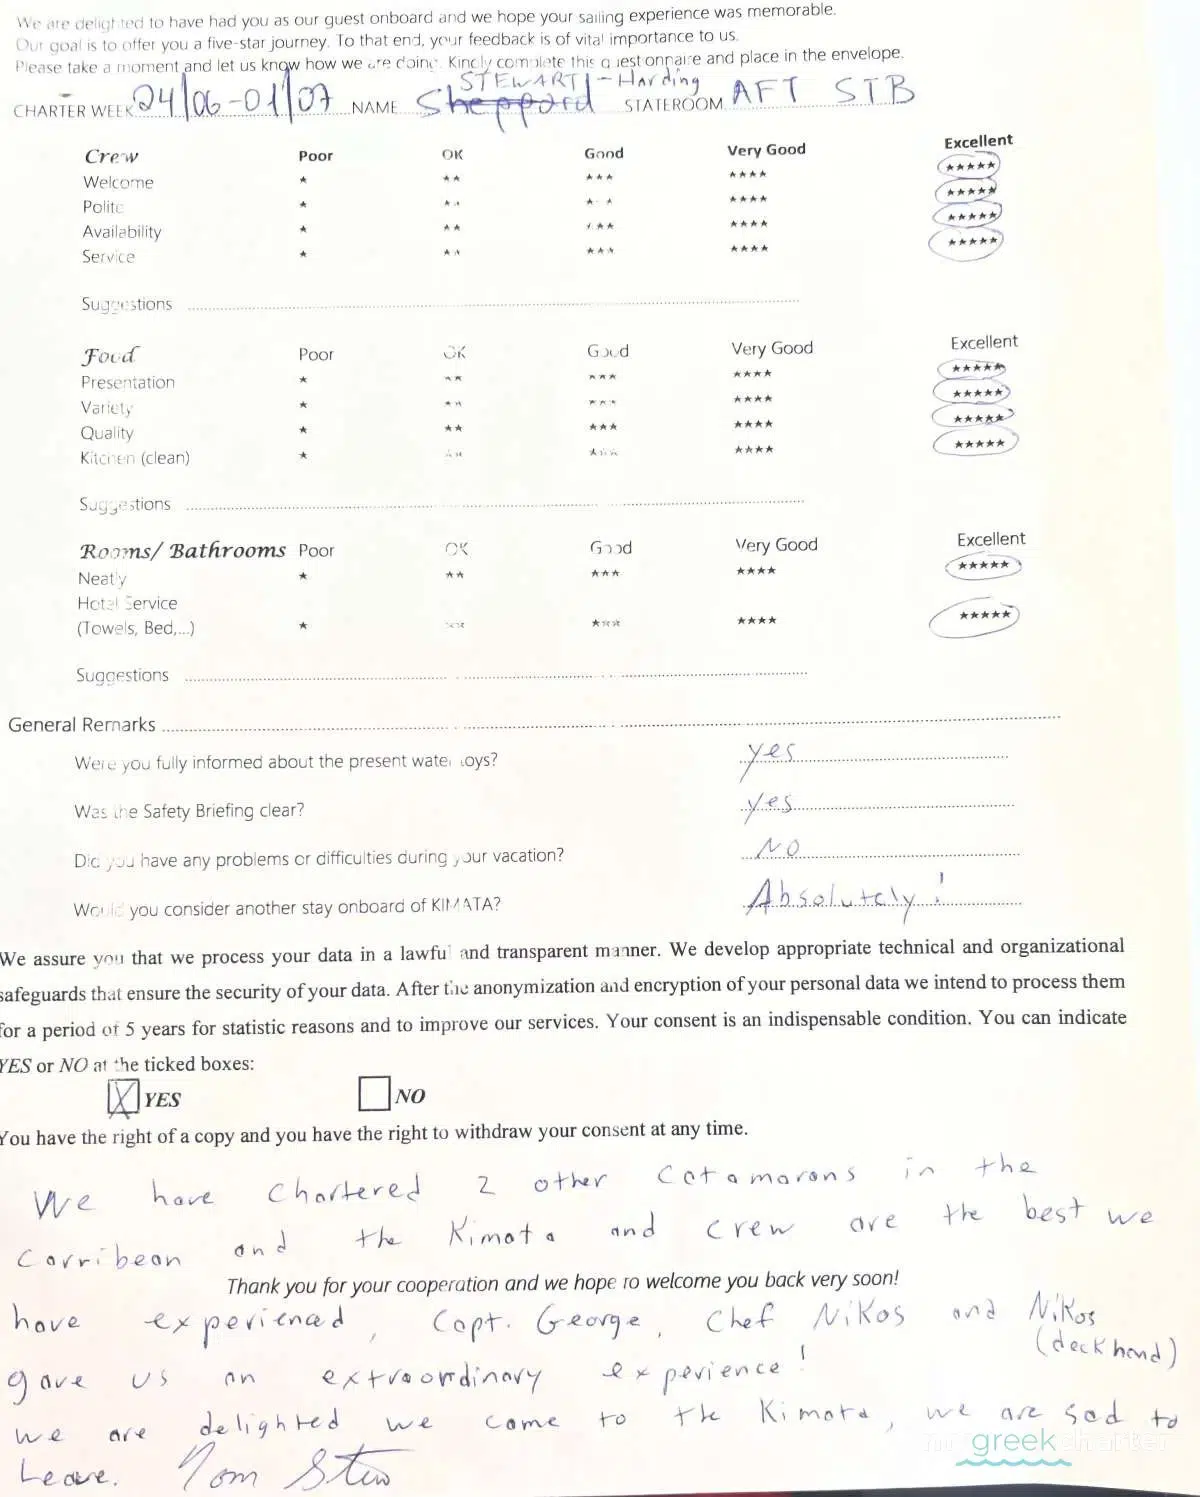 We are delighted to have had you as our guest onboard and we hope your sailing experience was memorable.
Our goal is to offer you a five-star journey. To that end, your feedback is of vital importance to us.
Please take a moment and let us know how we are doing. Kindly complete this questionnaire and place in the envelope.
STEWART - Harding
CHARTER WEEK 24/06-01/07 NAME Sheppard STATEROOM AFT STB
Crew Poor OK Good Very Good Excellent
Welcome ★ ★★ ★★★ ★★★★ ★★★★★
Polite ★ ★★ ★★★ ★★★★ ★★★★★
Availability ★ ★★ ★★★ ★★★★ ★★★★★
Service ★ ★★ ★★★ ★★★★ ★★★★★
Suggestions
Food Poor OK Good Very Good Excellent
Presentation ★ ★★ ★★★ ★★★★ ★★★★★
Variety ★ ★★ ★★★ ★★★★ ★★★★★
Quality ★ ★★ ★★★ ★★★★ ★★★★★
Kitchen (clean) ★ ★★ ★★★ ★★★★ ★★★★★
Suggestions
Rooms/ Bathrooms Poor OK Good Very Good Excellent
Neatly ★ ★★ ★★★ ★★★★ ★★★★★
Hotel Service
(Towels, Bed,...) ★ ★★ ★★★ ★★★★ ★★★★★
Suggestions
General Remarks
Were you fully informed about the present water toys? yes
Was the Safety Briefing clear? yes
Did you have any problems or difficulties during your vacation? NO
Would you consider another stay onboard of KIMATA? Absolutely!
We assure you that we process your data in a lawful and transparent manner. We develop appropriate technical and organizational
safeguards that ensure the security of your data. After the anonymization and encryption of your personal data we intend to process them
for a period of 5 years for statistic reasons and to improve our services. Your consent is an indispensable condition. You can indicate
YES or NO at the ticked boxes:
X YES NO
You have the right of a copy and you have the right to withdraw your consent at any time.
We have chartered 2 other catamarans in the
Carribean and the Kimata and crew are the best we
Thank you for your cooperation and we hope to welcome you back very soon!
have experienced, Capt. George, Chef Nikos and Nikos
(deckhand)
gave us an extraordinary experience!
we are delighted we came to the Kimata, we are sad to
Leave. Tom Stew
mr greek charter